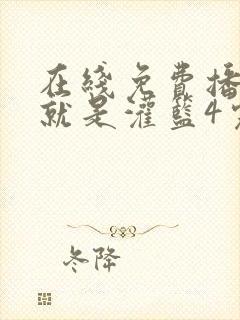 在线免费播
就是灌篮4
冬降